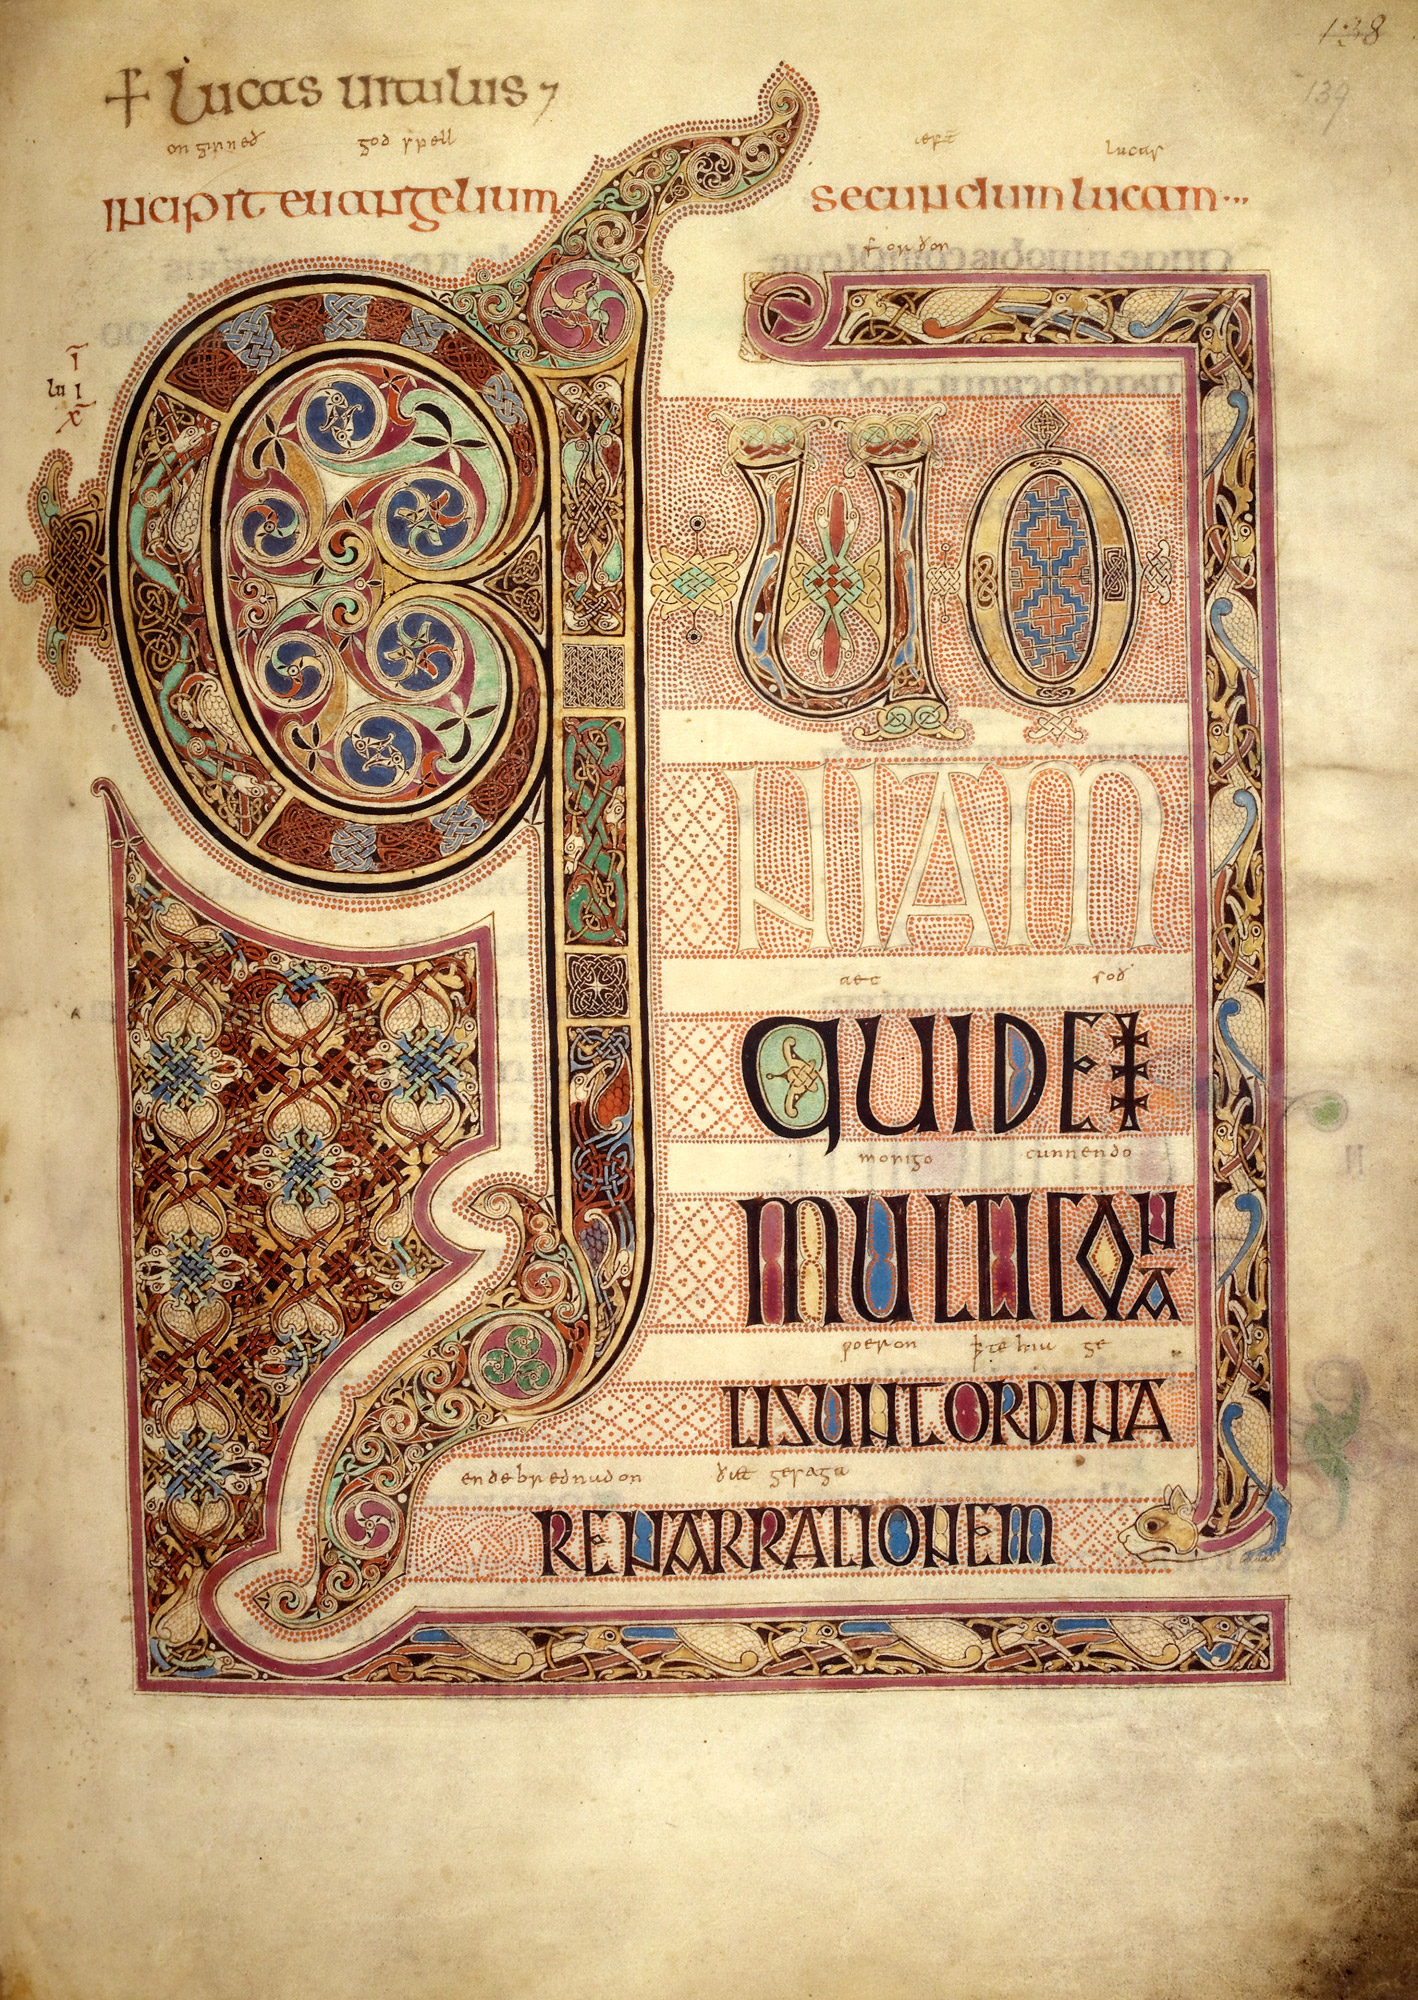 138
139
+ Lucas uitulus 7
onginneð godspell æft lucas
incipit euangelium secundum lucam...
forðon
lu I
X
QUO
NIAM
aec soð
QUIDEM
monigo cunnendo
MULTI CON
A
woeron þte hiu ge
TI SUNT ORDINA
endebrednudon ðætt gesaga
RE NARRATIONEM